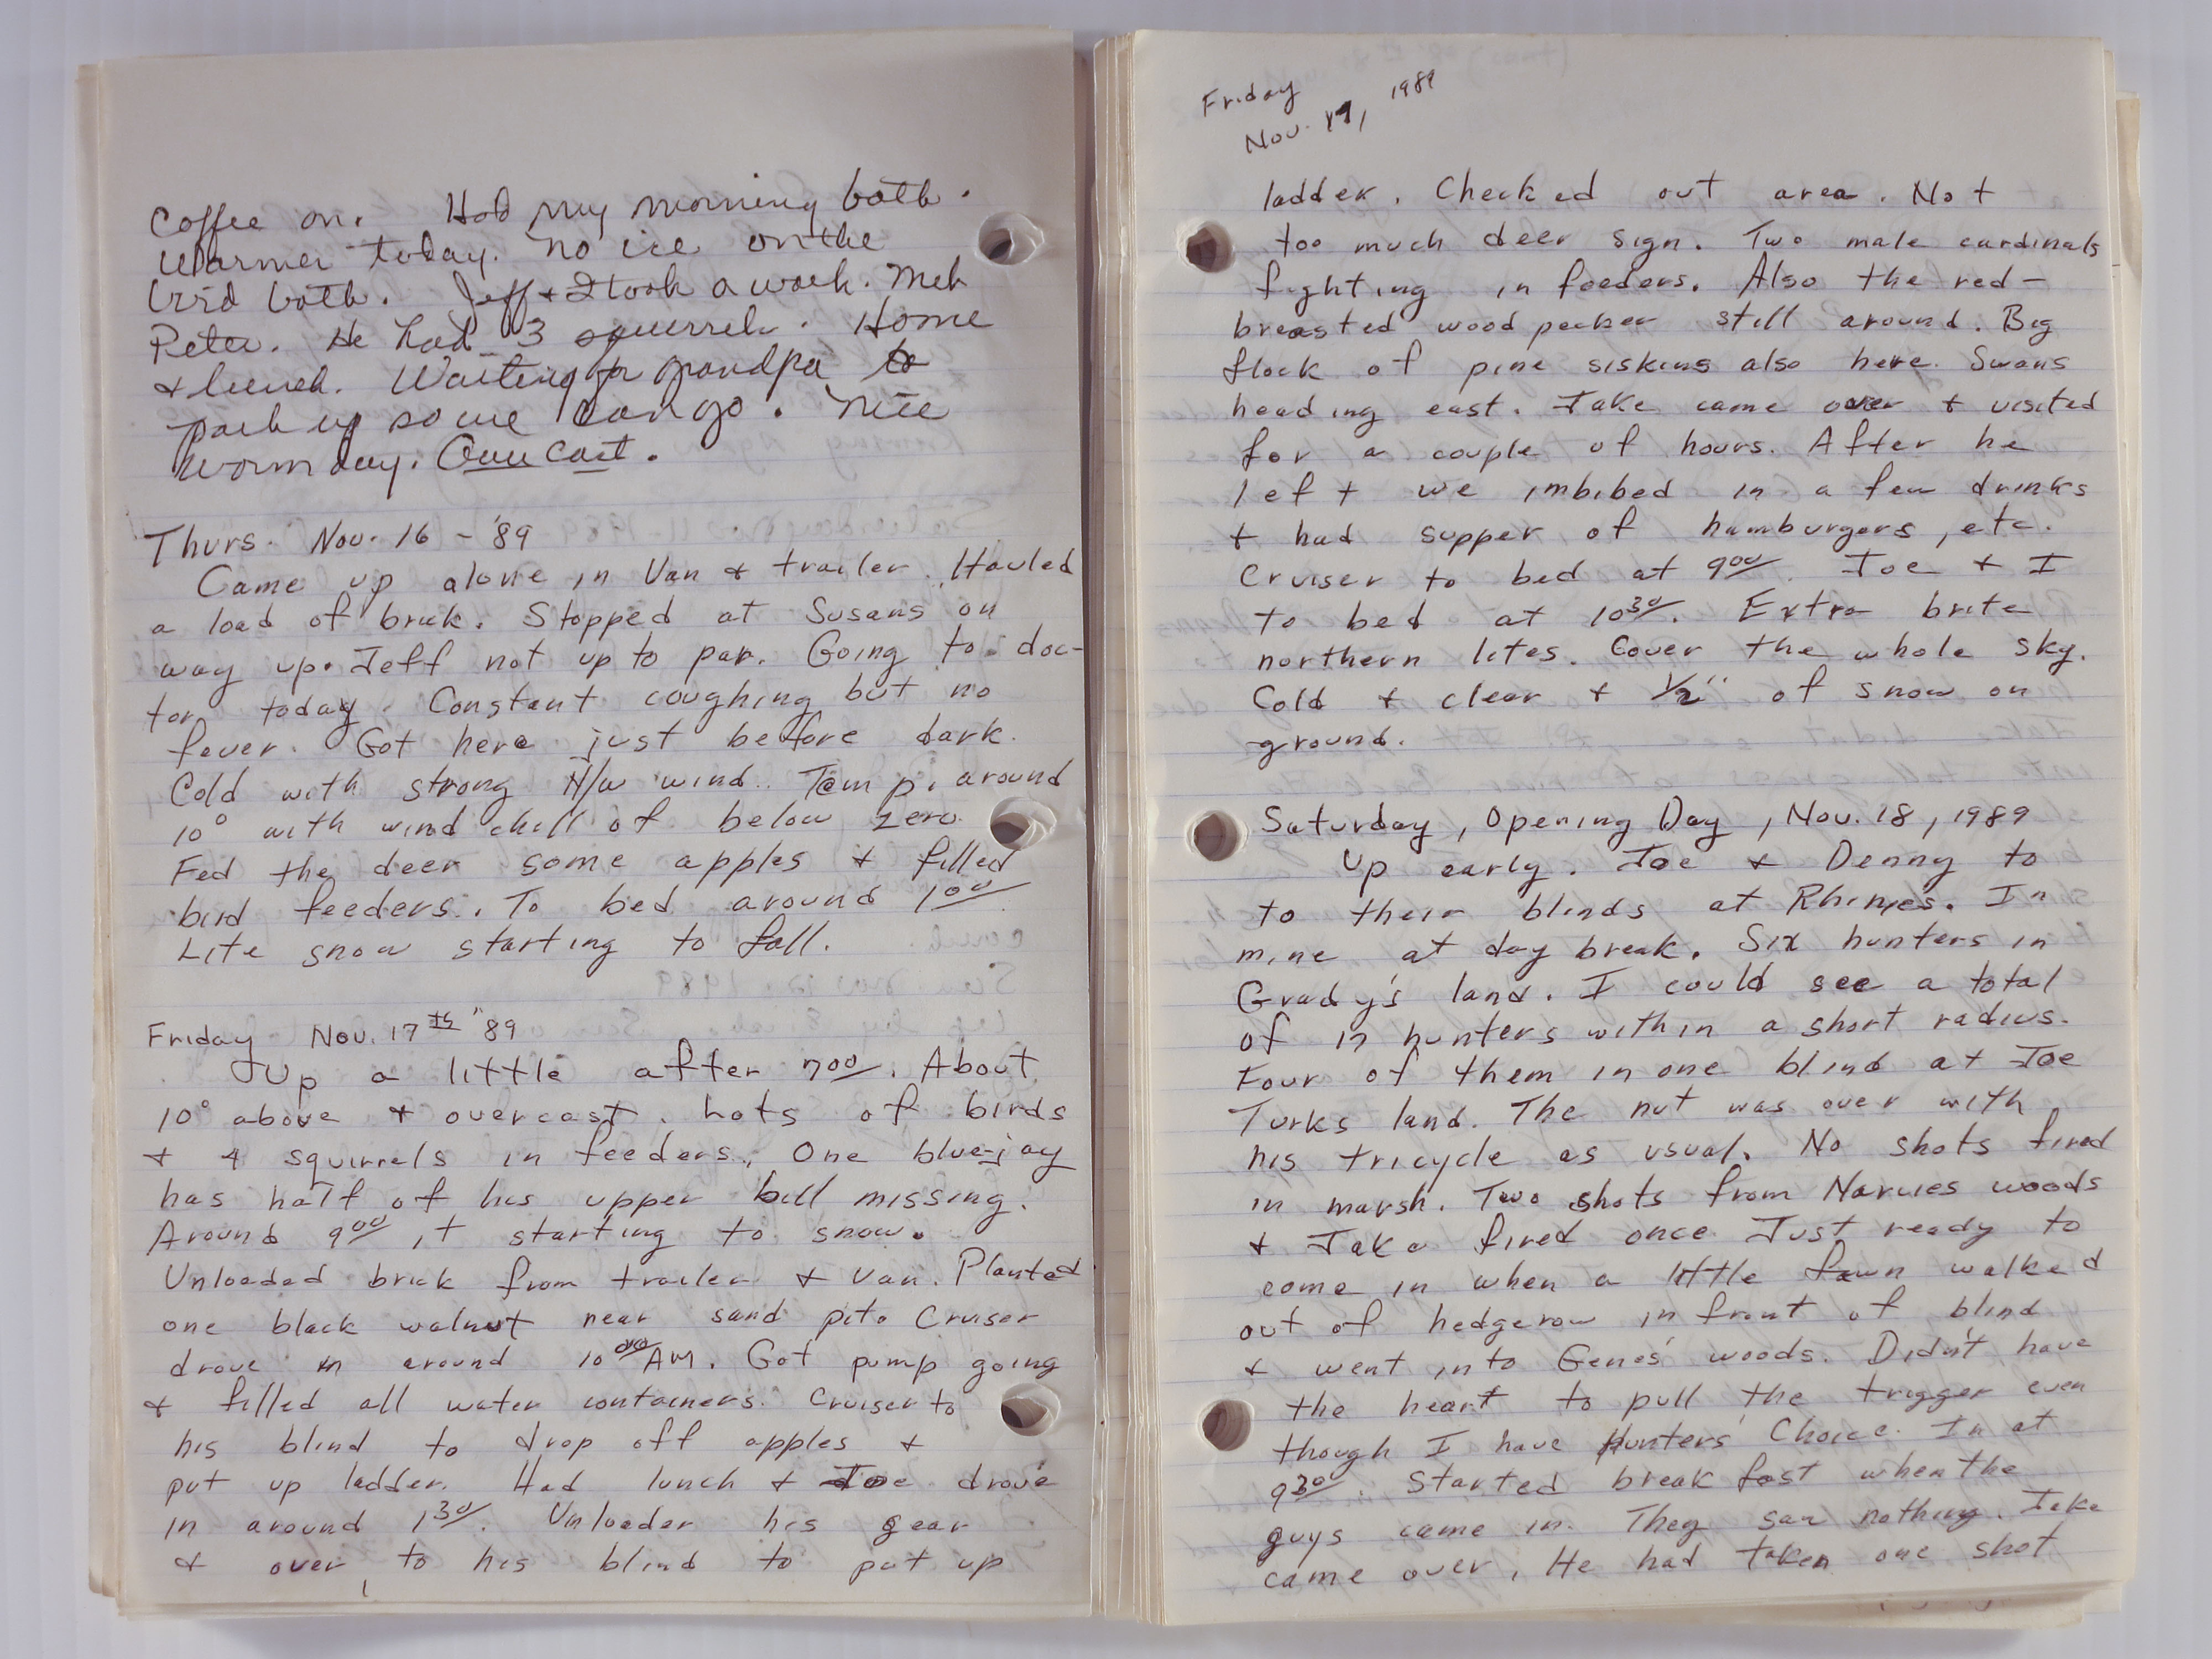 Coffee on. Had my morning bath.
Warmer today. no ice on the
bird bath. Jeff + I took a walk. Met
Peter. He had 3 squirrels. Home
+ lunch. Waiting for grandpa to
pack up some cargo. Nice
warm day. Over Cast.
Thurs. Nov. 16 - '89
Came up alone in Van + trailer. Hauled
a load of brick. Stopped at Susans on
way up. Jeff not up to par. Going to doc-
tor today. Constant coughing but no
fever. Got here just before dark.
Cold with strong N/W wind. Temp. around
10° with wind chill of below zero.
Fed the deer some apples + filled
bird feeders. To bed around 1:00
Lite snow starting to fall.
Friday Nov. 17th "89
Up a little after 700. About
10° above + overcast. Lots of birds
+ 4 squirrels in feeders. One bluejay
has half of his upper bill missing.
Around 900 it starting to snow.
Unloaded brick from trailer + Van. Planted
one black walnut near sand pit. Cruiser
drove in around 1000 AM. Got pump going
+ filled all water containers. Cruiser to
his blind to drop off apples +
put up ladder. Had lunch + Joe drove
in around 130. Unloader his gear
+ over to his blind to put up
Friday
Nov. 17, 1989
ladder. Checked out area. Not
too much deer sign. Two male cardinals
fighting in feeders. Also the red-
breasted woodpecker still around. Big
flock of pine siskins also here. Swans
heading east. Jake came over + visited
for a couple of hours. After he
left we imbibed in a few drinks
+ had supper of hamburgers, etc.
Cruiser to bed at 900. Joe + I
to bed at 1030. Extra brite
northern lites. Cover the whole sky.
Cold + clear + 1/2" of snow on
ground.
Saturday, Opening Day, Nov. 18, 1989
Up early. Joe + Denny to
to their blinds at Rhines. In
mine at day break. Six hunters in
Grady's land. I could see a total
of 17 hunters within a short radius.
Four of them in one blind at Joe
Turks land. The nut was over with
his tricycle as usual. No shots fired
in marsh. Two shots from Narvies woods
+ Jake fired once. Just ready to
come in when a little fawn walked
out of hedgerow in front of blind
+ went into Genes' woods. Didn't have
the heart to pull the trigger even
though I have Hunters' Choice. In at
930. Started breakfast when the
guys came in. They saw nothing. Jake
came over, He had taken one shot